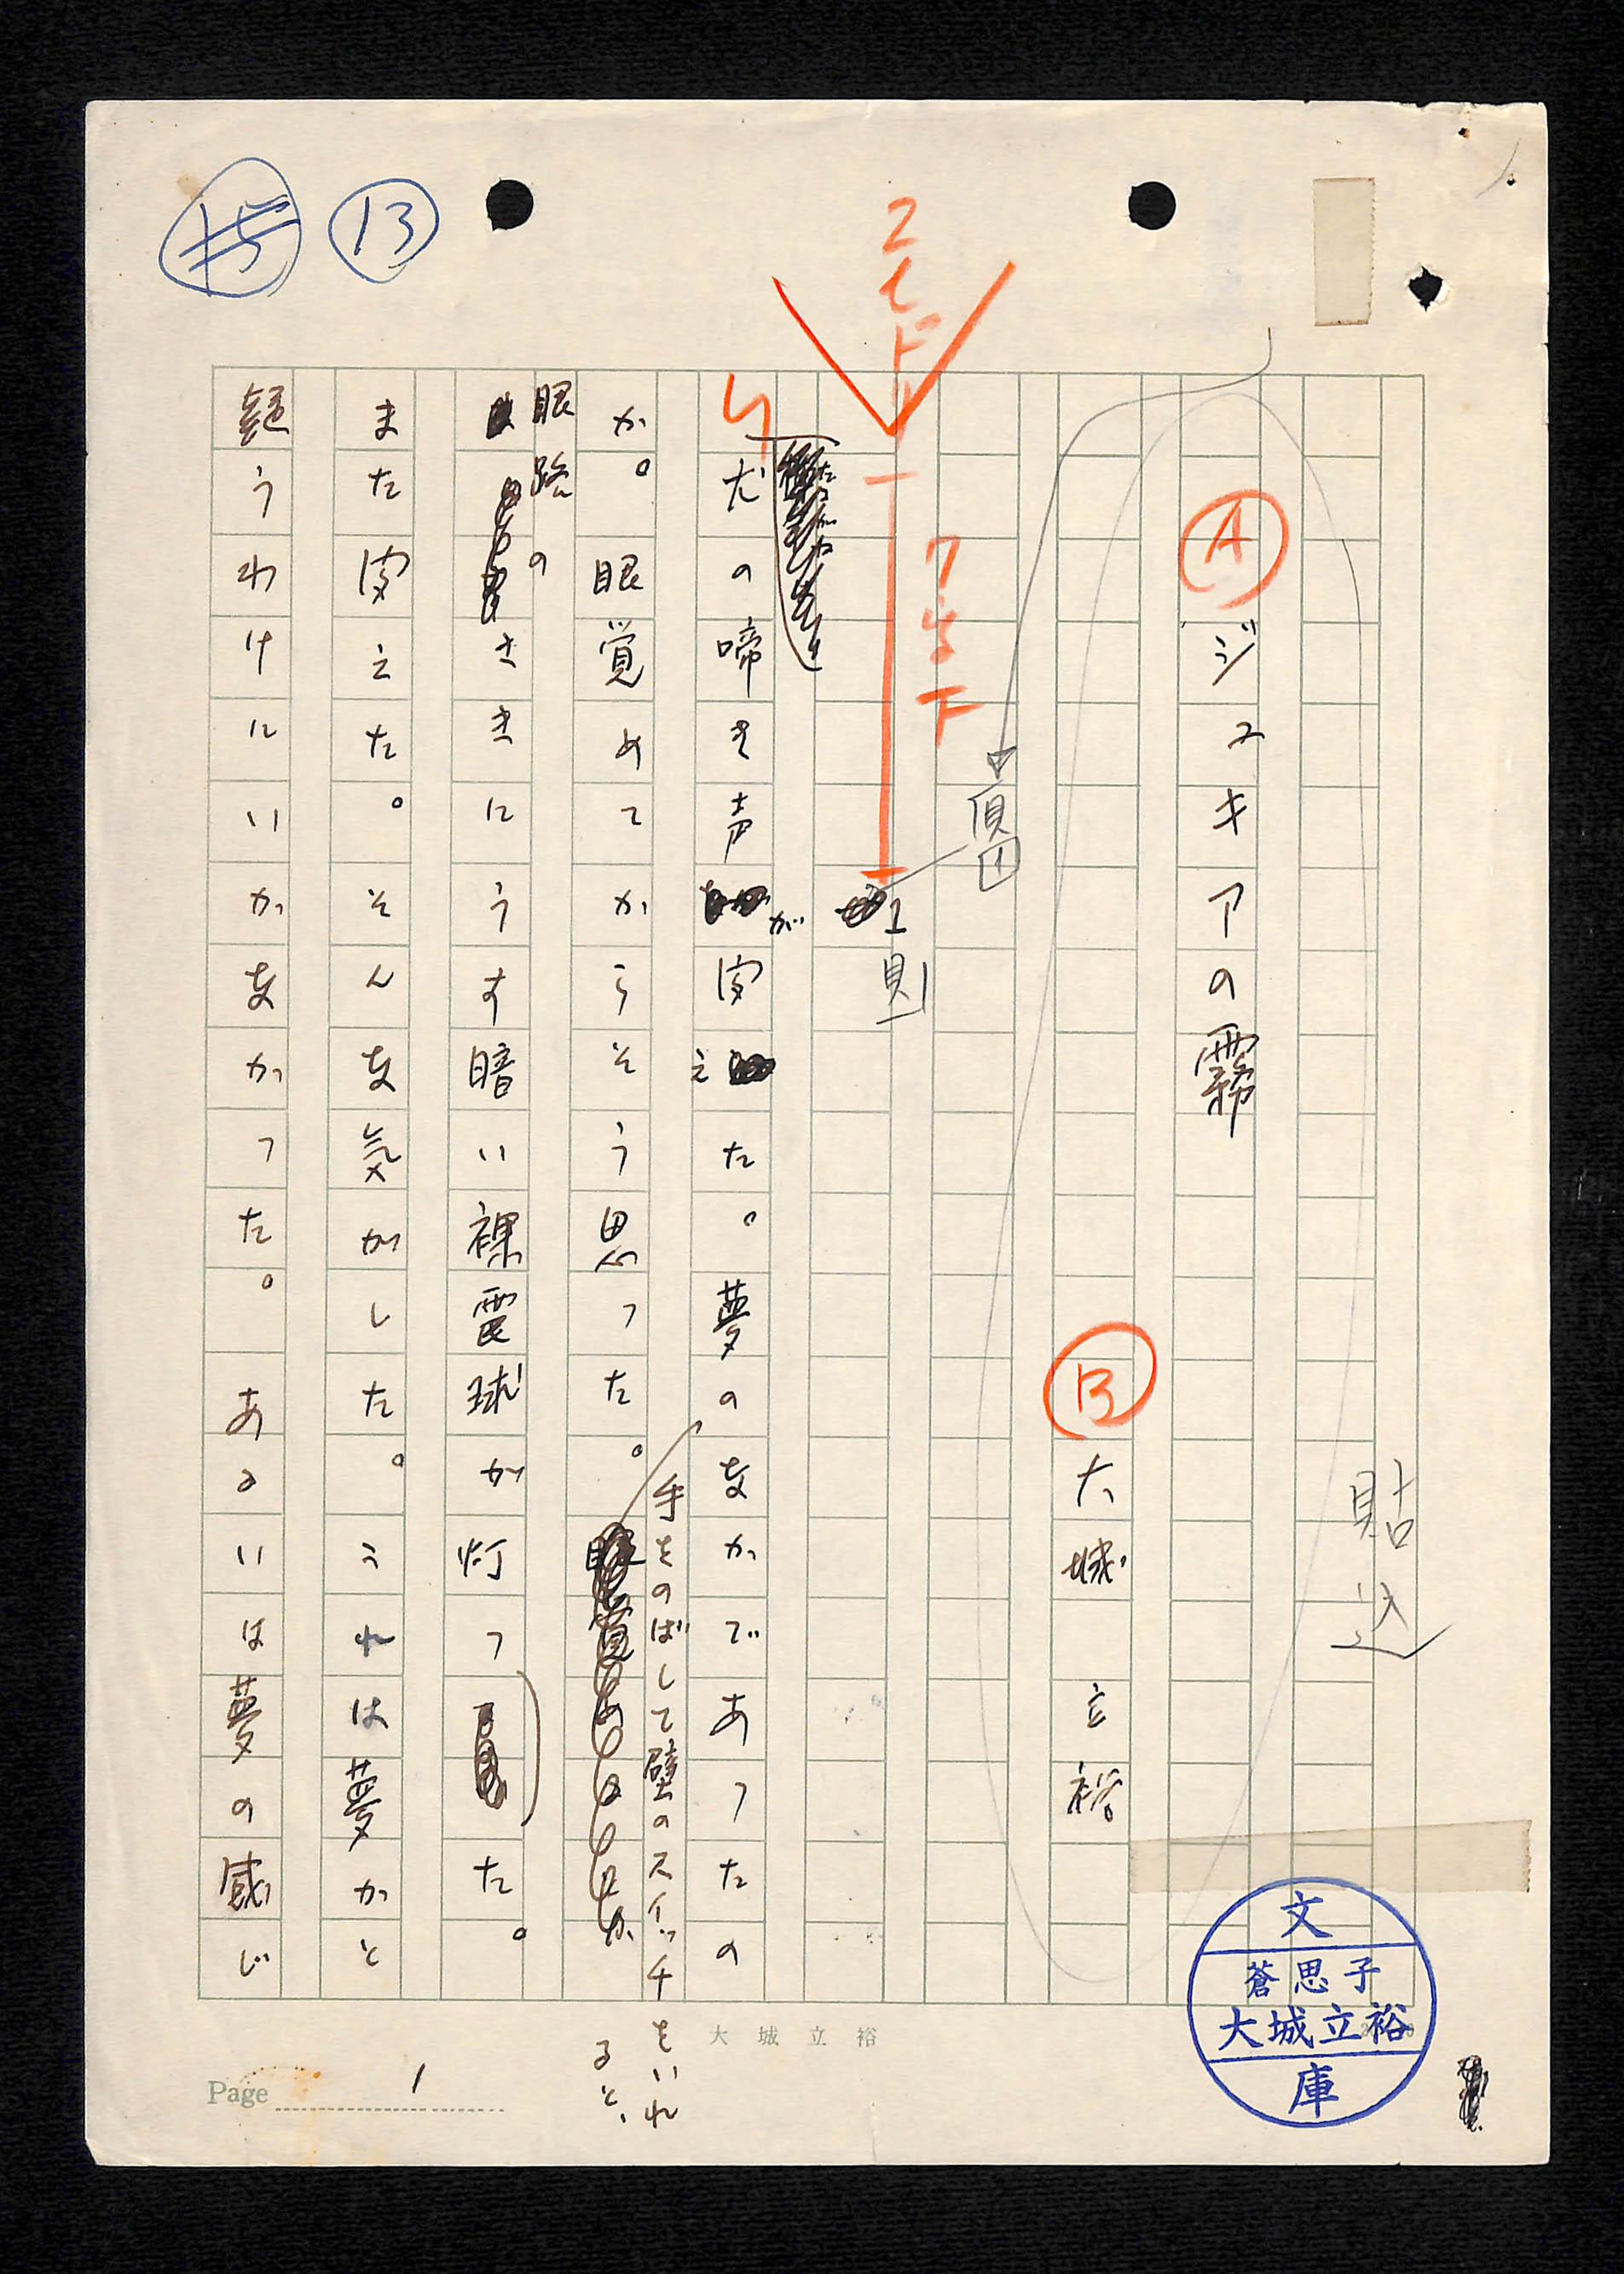 15
13
2行ドリ
7字下
貼込
Ⓐ
ジュキアの霧
Ⓑ
大城 立裕
1
だの啼き声が聞えた。夢のなかであったの
か。眼覚めてからそう思った。
手をのばして壁のスイッチをいれ
ると、
眼路の
さきにうす暗い裸電球が灯った。
また聞えた。そんな気がした。これは夢かと
疑うわけにいかなかった。あるいは夢の感じ
大城立裕
Page 1
文
蒼思子
大城立裕
庫